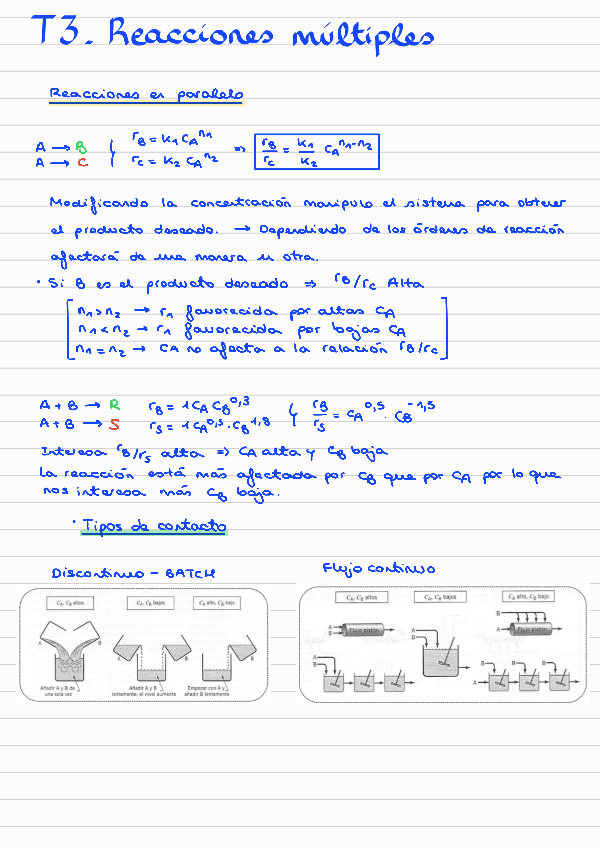 T3. Reacciones múltiples
Reacciones en paralelo
A → B { r_B = k₁ C_A^n₁ ⇒ r_B/r_C = k₁/k₂ C_A^(n₁-n₂)
A → C { r_C = k₂ C_A^n₂
Modificando la concentración manipulo el sistema para obtener
el producto deseado. → Dependiendo de los órdenes de reacción
afectará de una manera u otra.
· Si B es el producto deseado ⇒ r_B/r_C Alta
n₁ > n₂ → r₁ favorecida por altas C_A
n₁ < n₂ → r₁ favorecida por bajas C_A
n₁ = n₂ → C_A no afecta a la relación r_B/r_C
A + B → R r_B = 1 C_A C_B^0,3 { r_B/r_S = C_A^0,5 · C_B^-1,5
A + B → S r_S = 1 C_A^0,5 · C_B^1,8
Interesa r_B/r_S alta ⇒ C_A alta y C_B baja
La reacción está más afectada por C_B que por C_A por lo que
nos interesa más C_B baja.
· Tipos de contacto
Discontinuo - BATCH
C_A, C_B altos
C_A, C_B bajos
C_A alto, C_B bajo
A
B
A
B
A
B
Añadir A y B de
una sola vez
Añadir A y B
lentamente; el nivel aumenta
Empezar con A y
añadir B lentamente
Flujo continuo
C_A, C_B altos
C_A, C_B bajos
C_A alto, C_B bajo
A
B
Flujo pistón
A
B
B
A
Flujo pistón
A
B
B
B
B
A